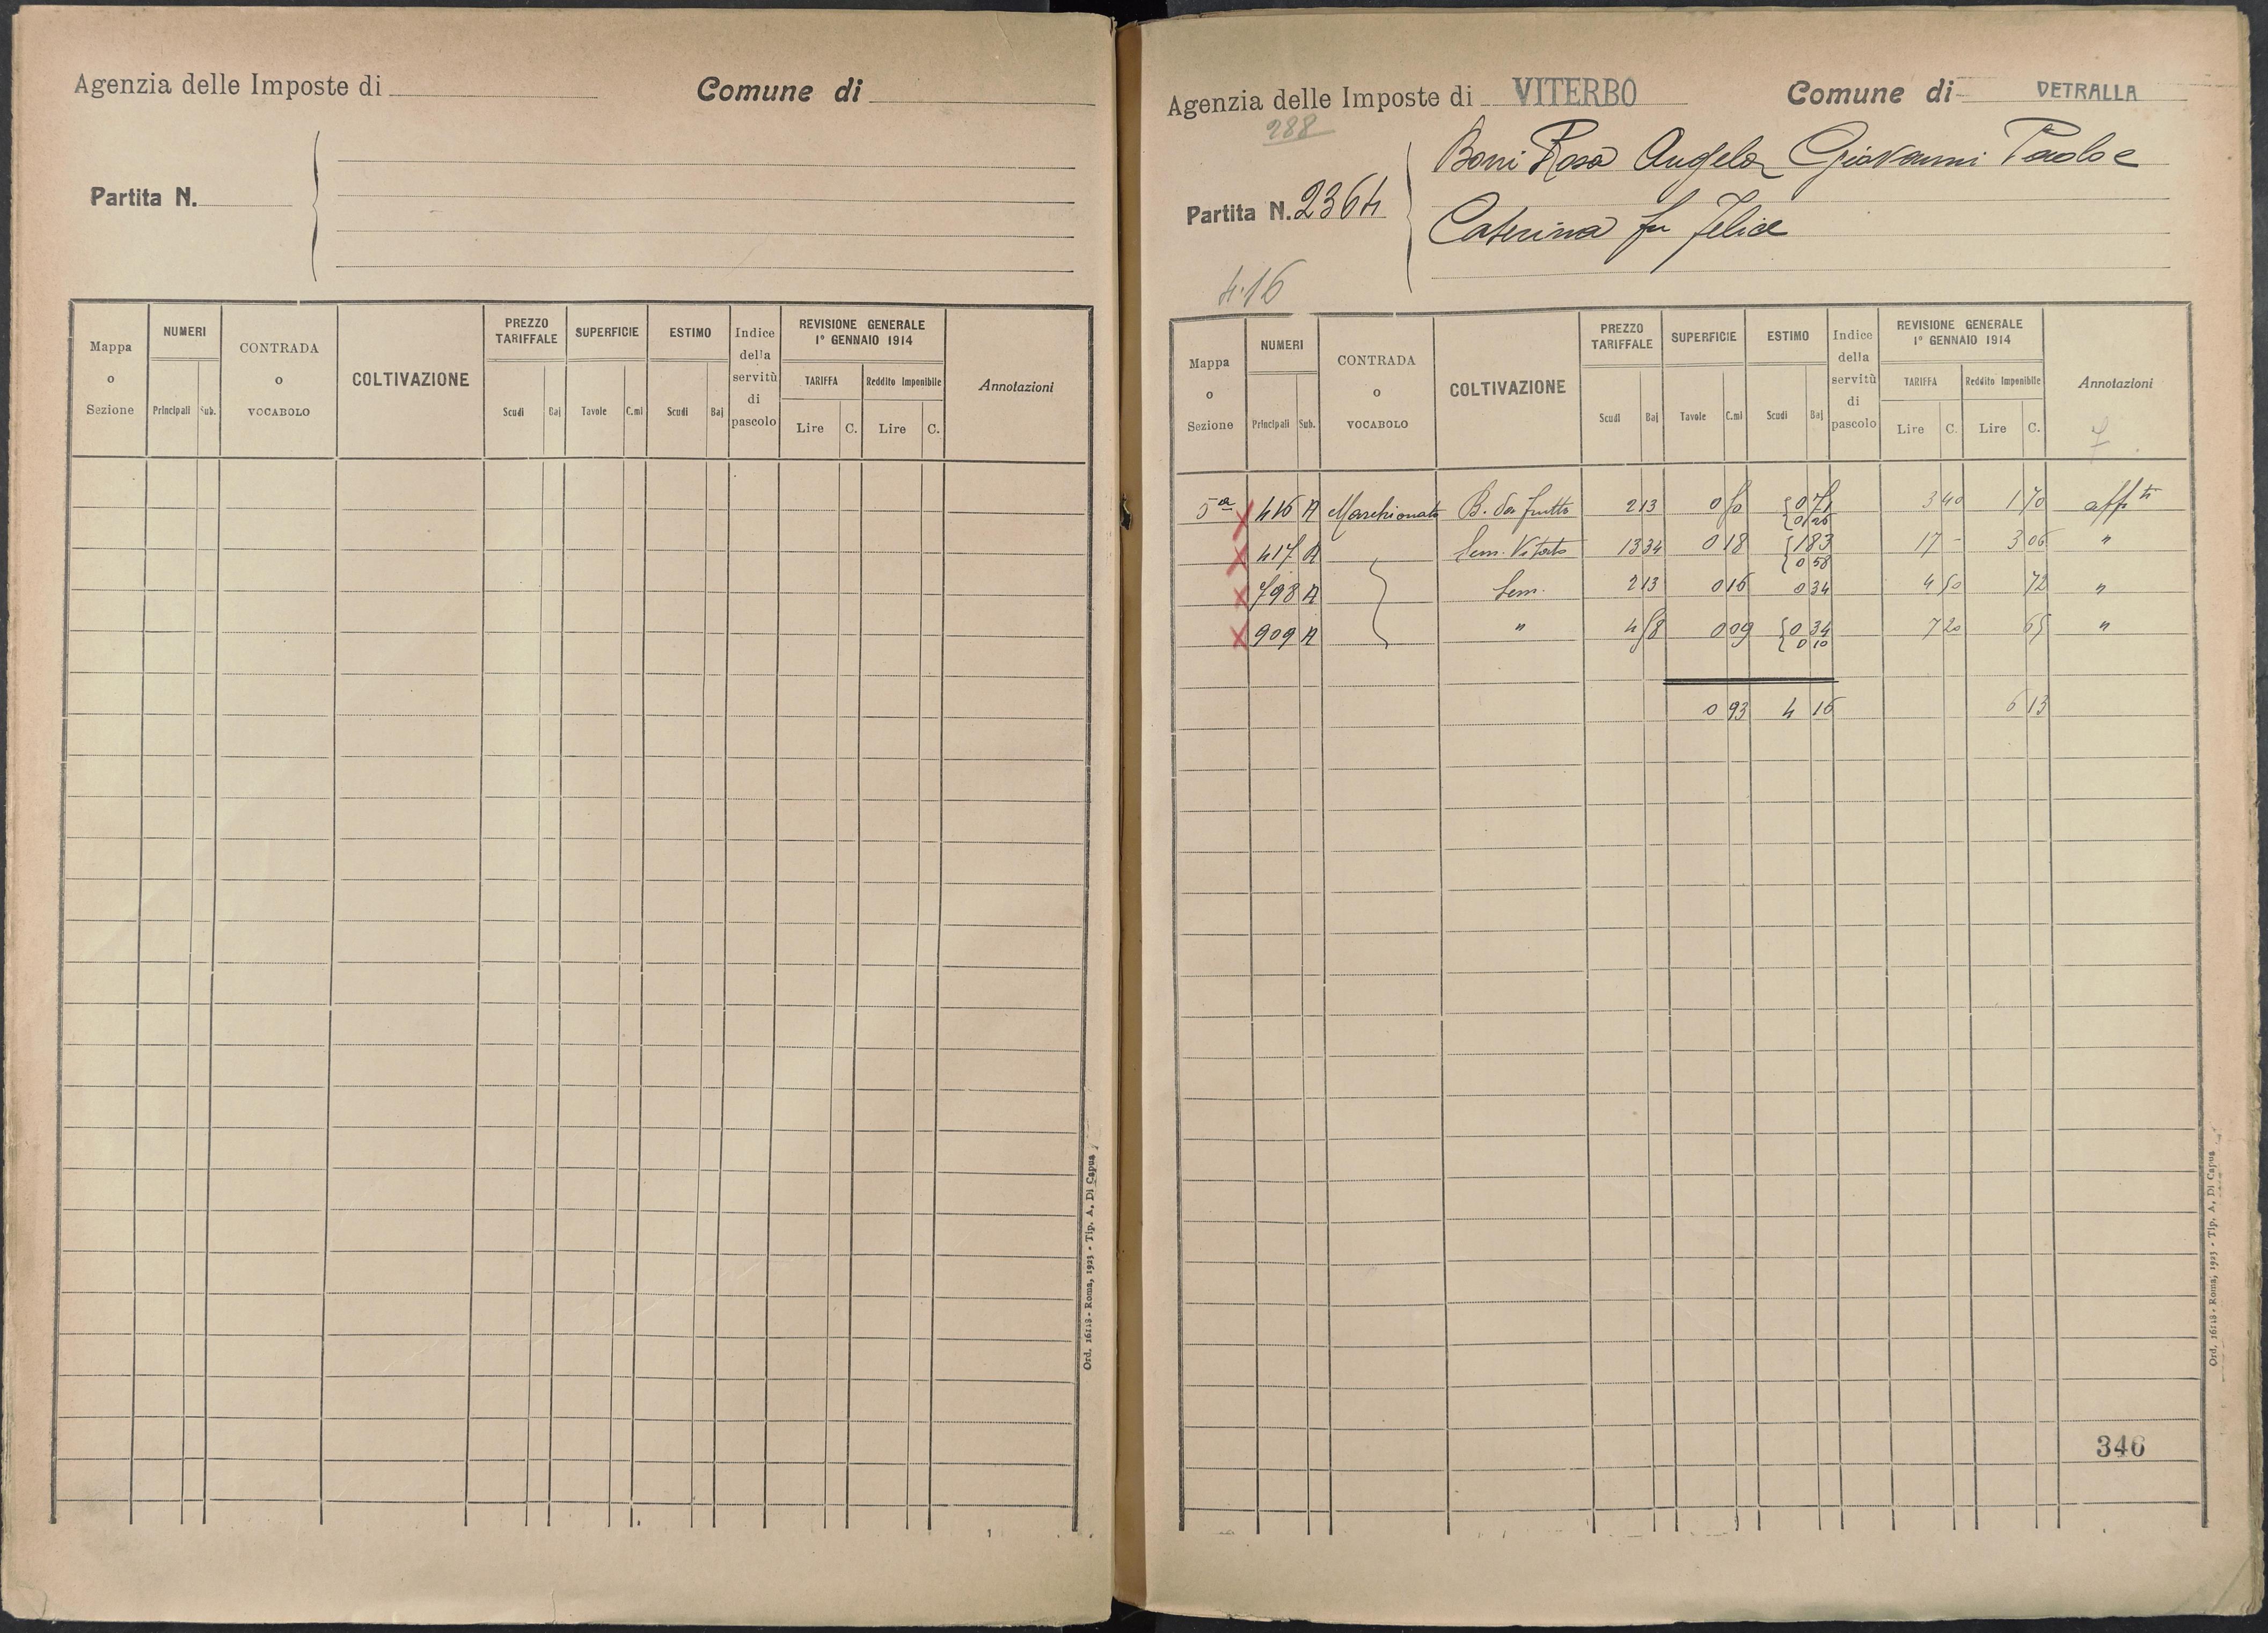 Agenzia delle Imposte di
Comune di
Partita N.
Mappa o Sezione
NUMERI
Principali Sub.
CONTRADA o VOCABOLO
COLTIVAZIONE
PREZZO TARIFFALE
Scudi Baj
SUPERFICIE
Tavole C.mi
ESTIMO
Scudi Baj
Indice della servitù di pascolo
REVISIONE GENERALE
1° GENNAIO 1914
TARIFFA
Lire C.
Reddito Imponibile
Lire C.
Annotazioni
Ord. 16118 - Roma, 1923 - Tip. A. Di Capua
1
Agenzia delle Imposte di VITERBO
Comune di VETRALLA
288
Partita N. 2364
Boni Rosa Angela Giovanni Paolo e
Caterina fu Felice
4.16
Mappa o Sezione
NUMERI
Principali Sub.
CONTRADA o VOCABOLO
COLTIVAZIONE
PREZZO TARIFFALE
Scudi Baj
SUPERFICIE
Tavole C.mi
ESTIMO
Scudi Baj
Indice della servitù di pascolo
REVISIONE GENERALE
1° GENNAIO 1914
TARIFFA
Lire C.
Reddito Imponibile
Lire C.
Annotazioni
5a 416 A Marchionato B. da frutto 2 13 0 50 0 71 3 40 1 70 affti
0 26
417 A Sem. Vitato 13 34 0 18 1 83 17 - 3 06 "
0 58
798 A Sem. 2 13 0 16 0 34 4 50 72 "
909 A " 4 58 0 09 0 34 7 20 65 "
0 10
0 93 4 16 6 13
346
Ord. 16118 - Roma, 1923 - Tip. A. Di Capua